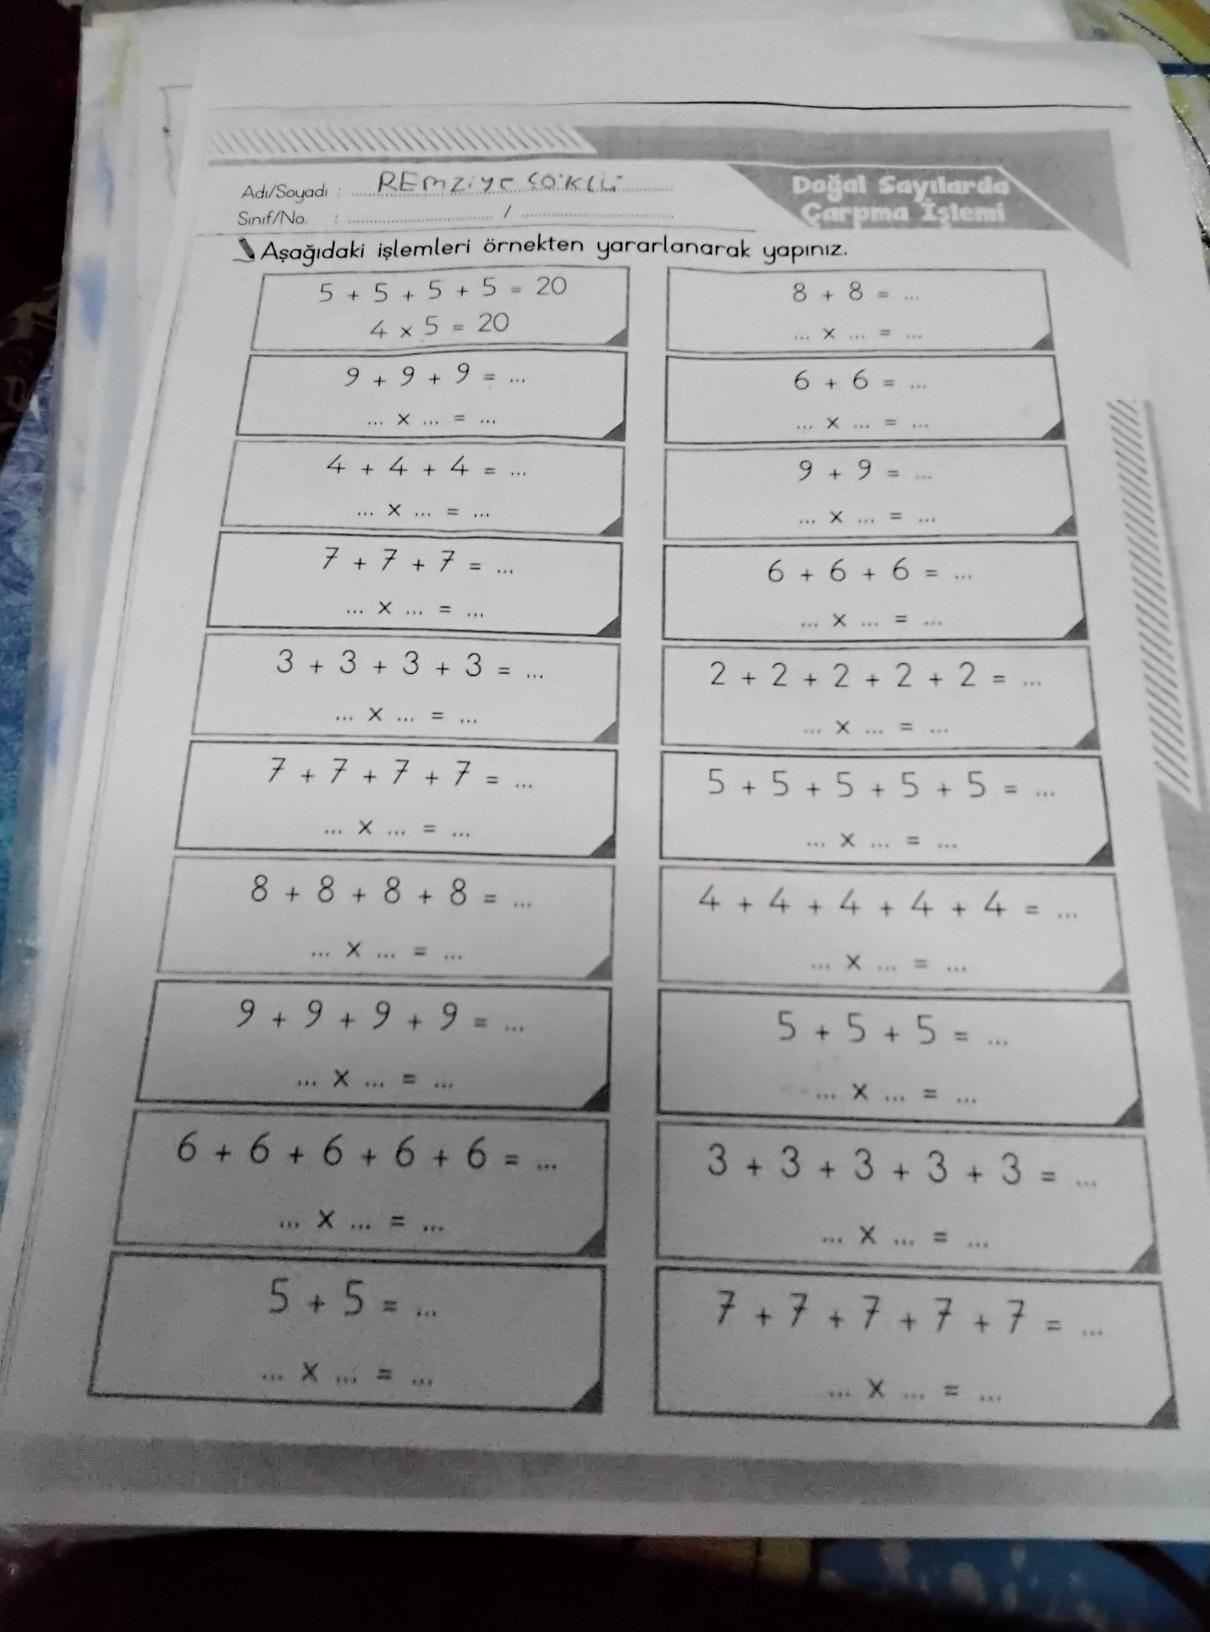 Adı/Soyadı : REmziye ÇÖKLÜ
Sınıf/No. : ............ / ............
Doğal Sayılarda
Çarpma İşlemi
Aşağıdaki işlemleri örnekten yararlanarak yapınız.
5 + 5 + 5 + 5 = 20
4 x 5 = 20
9 + 9 + 9 = ...
... x ... = ...
4 + 4 + 4 = ...
... x ... = ...
7 + 7 + 7 = ...
... x ... = ...
3 + 3 + 3 + 3 = ...
... x ... = ...
7 + 7 + 7 + 7 = ...
... x ... = ...
8 + 8 + 8 + 8 = ...
... x ... = ...
9 + 9 + 9 + 9 = ...
... x ... = ...
6 + 6 + 6 + 6 + 6 = ...
... x ... = ...
5 + 5 = ...
... x ... = ...
8 + 8 = ...
... x ... = ...
6 + 6 = ...
... x ... = ...
9 + 9 = ...
... x ... = ...
6 + 6 + 6 = ...
... x ... = ...
2 + 2 + 2 + 2 + 2 = ...
... x ... = ...
5 + 5 + 5 + 5 + 5 = ...
... x ... = ...
4 + 4 + 4 + 4 + 4 = ...
... x ... = ...
5 + 5 + 5 = ...
... x ... = ...
3 + 3 + 3 + 3 + 3 = ...
... x ... = ...
7 + 7 + 7 + 7 + 7 = ...
... x ... = ...